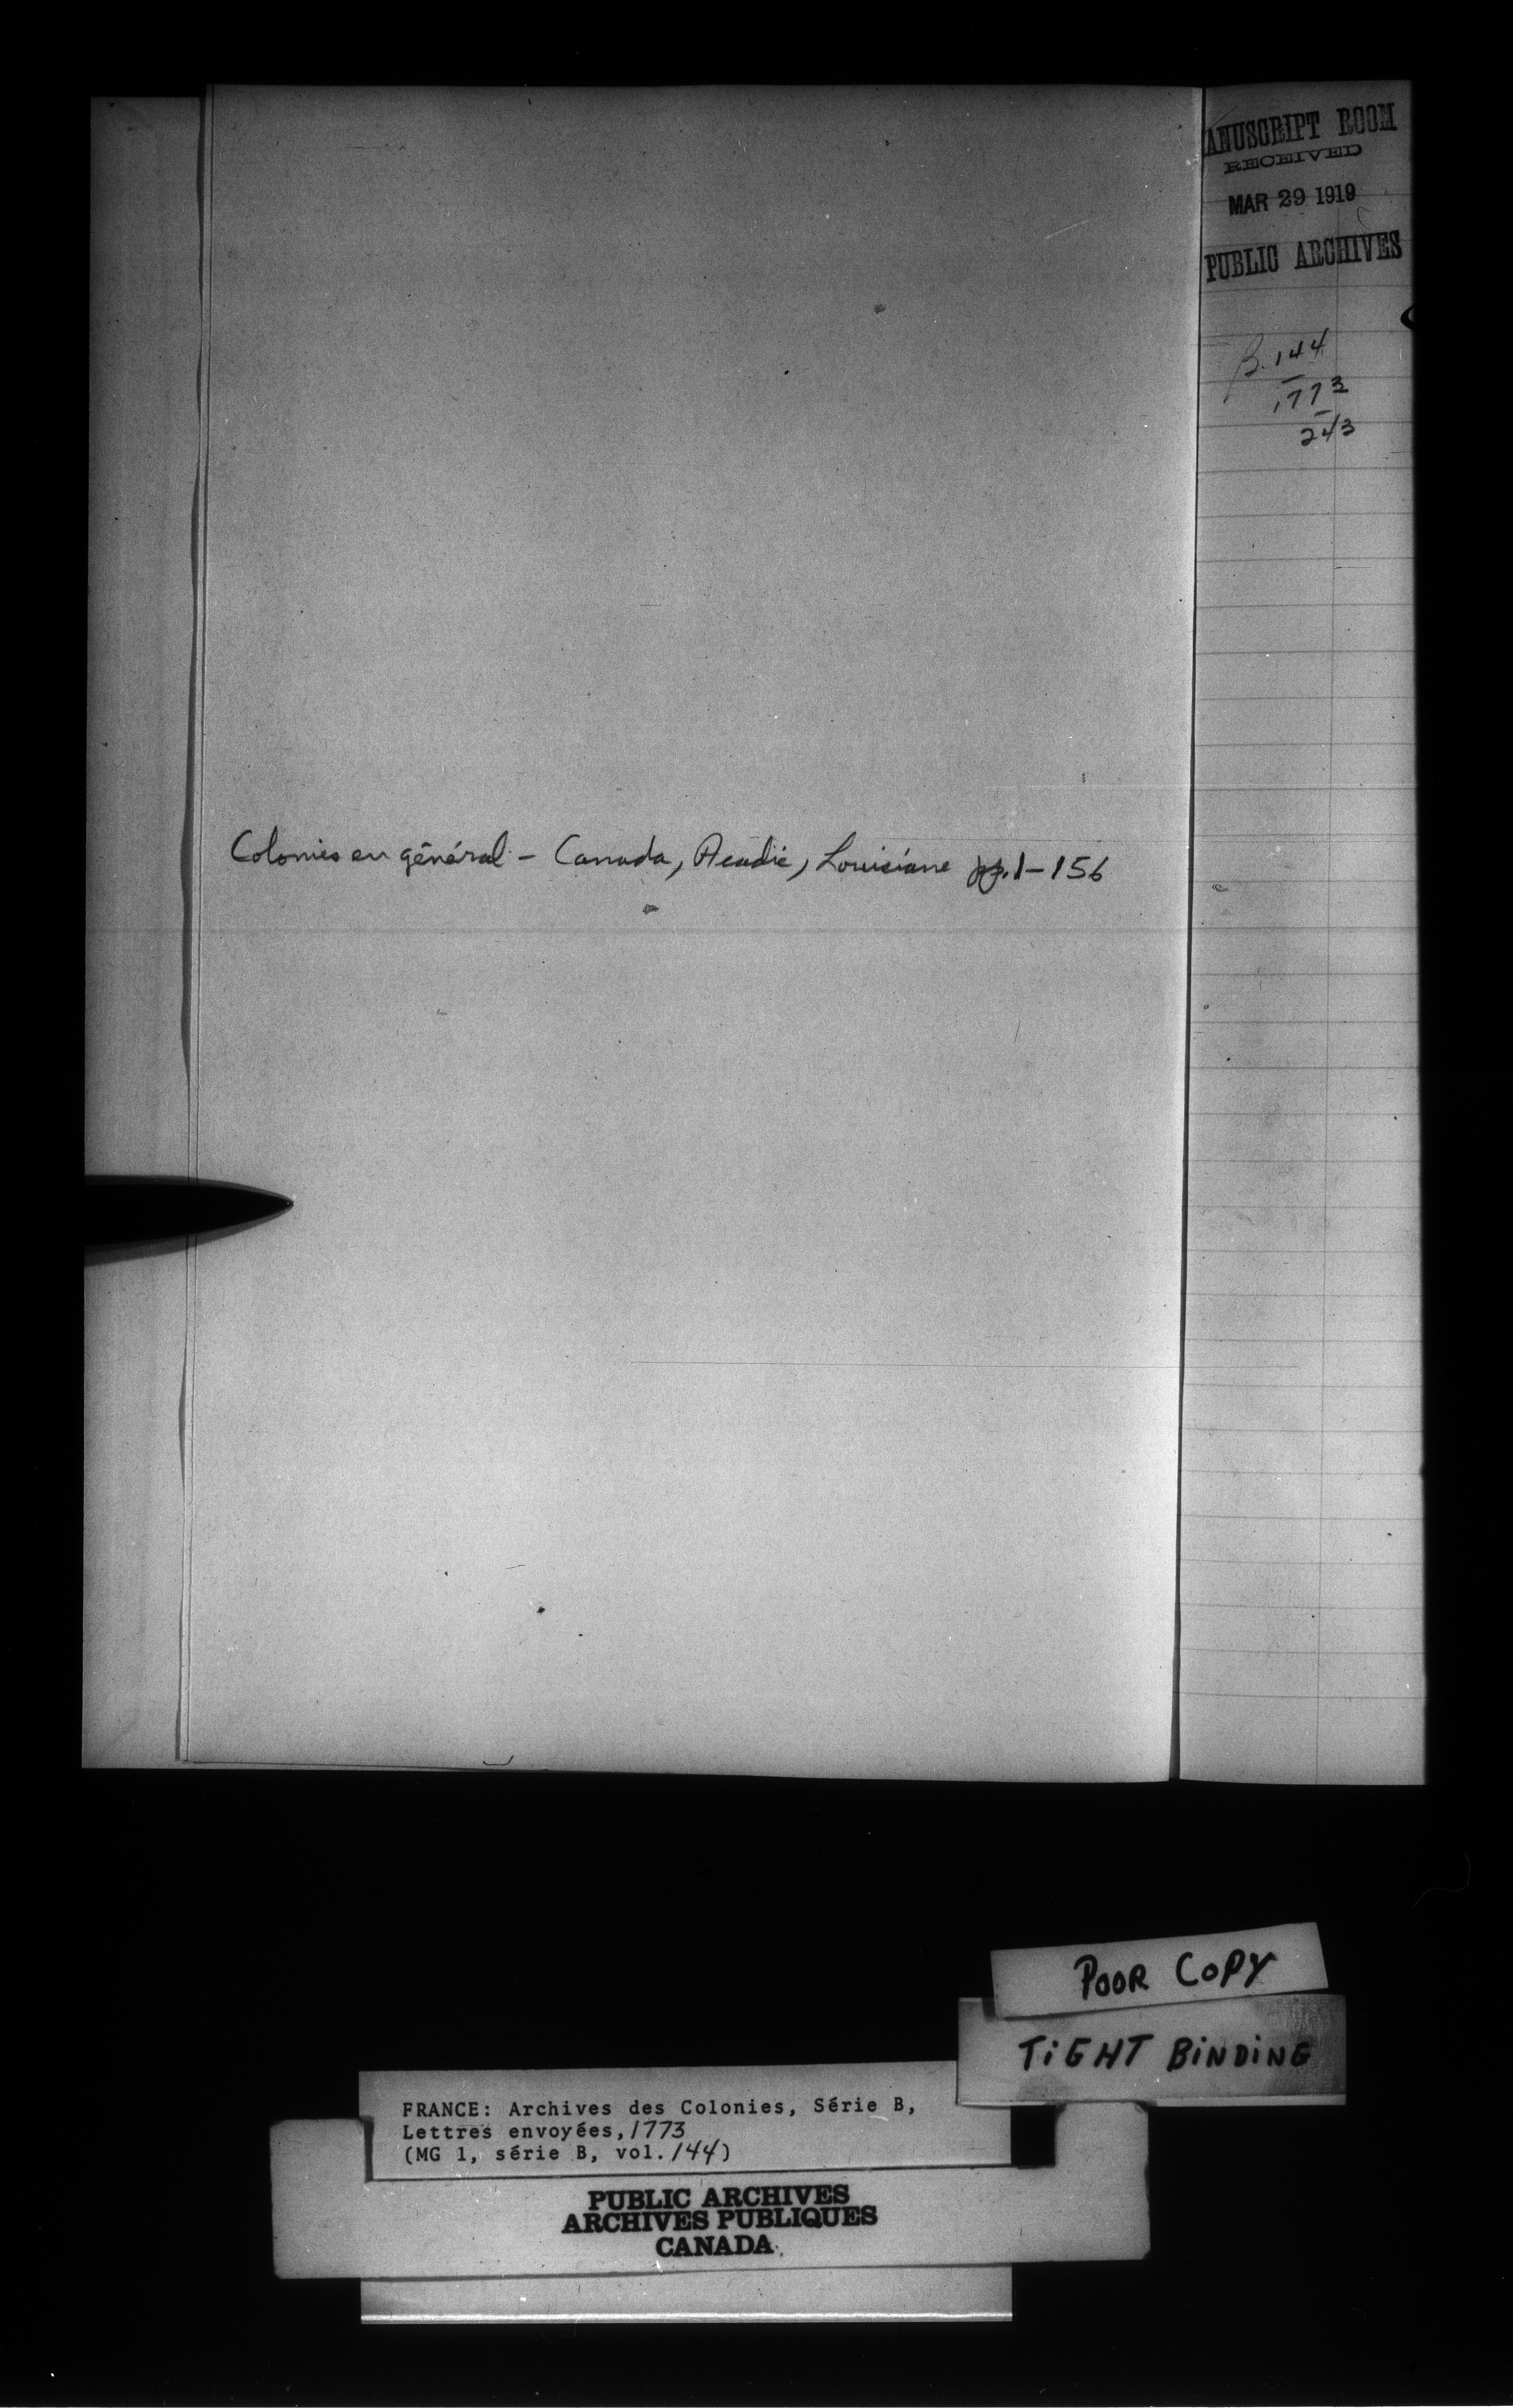 ANUSCRIPT ROOM
RECEIVED
MAR 29 1919
PUBLIC ARCHIVES
B. 144
1773
243
Colonies en général - Canada, Acadie, Louisiane pp. 1-156
POOR COPY
TIGHT BINDING
FRANCE: Archives des Colonies, Série B,
Lettres envoyées, 1773
(MG 1, série B, vol. 144)
PUBLIC ARCHIVES
ARCHIVES PUBLIQUES
CANADA